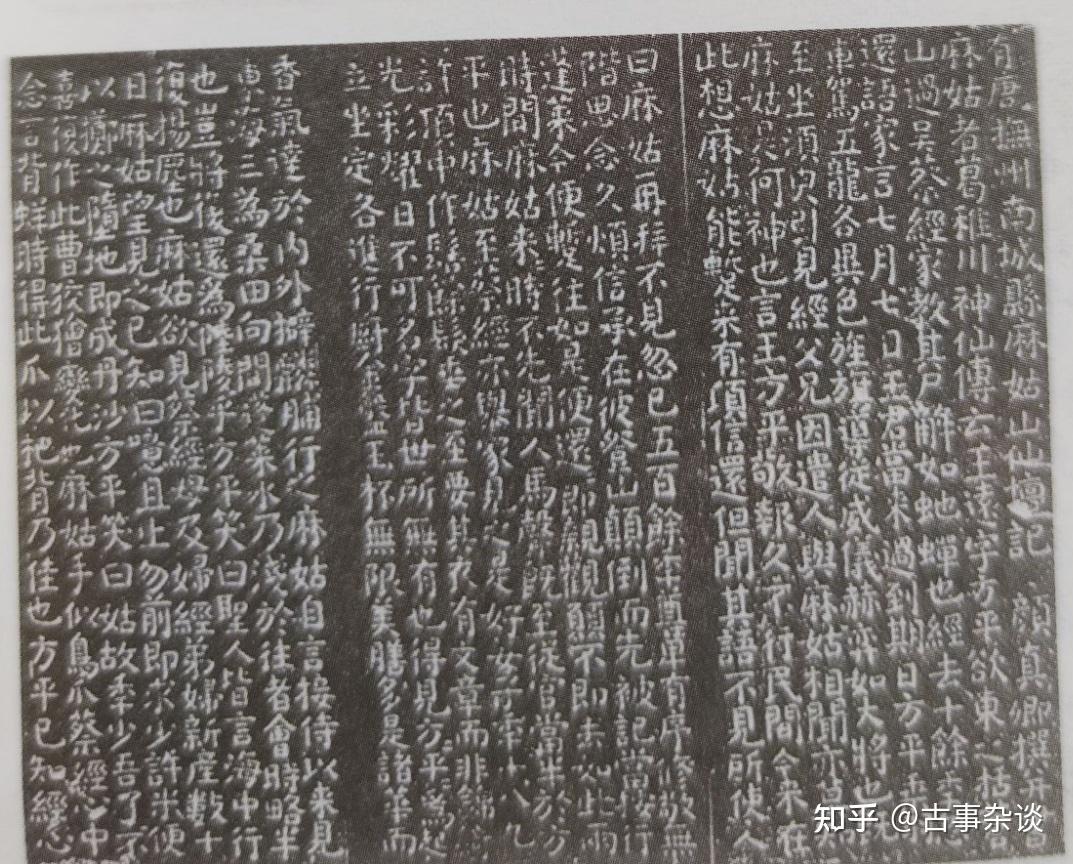 有唐撫州南城縣麻姑山仙壇記 顏真卿撰并
麻姑者葛稚川神仙傳云王遠字方平欲東之括蒼
山過吳蔡經家教其尸解如蛇蟬也經去十餘年
還語家言七月七日王君當來過到期日方平乘
車駕五龍各異色旌旗導從威儀赫弈如大將也
至坐須臾引見經父兄因遣人與麻姑相聞亦莫
麻姑是何神也言王方平敬報久不行民間今來在
此想麻姑能蹔來有頃信還但聞其語不見所使人
曰麻姑再拜不見忽已五百餘年尊卑有序修敬無
階思念久煩信承在彼登山顛倒而先被記當按行
蓬萊今便蹔往如是便還還即親觀願不即去如此兩
時間麻姑來時不先聞人馬聲既至從官當半於方
平也麻姑至蔡經亦舉家見之是好女子年十八九
許頂中作髻餘髮垂之至要其衣有文章而非錦
光彩耀日不可名字皆世所無有也得見方平為起
立坐定各進行廚金盤玉杯無限美膳多是諸華而
香氣達於內外擗麟脯行之麻姑自言接侍以來見
東海三為桑田向間蓬萊水乃淺於往者會時略半
也豈將復還為陸陵乎方平笑曰聖人皆言海中行
復揚塵也麻姑欲見蔡經母及婦經弟婦新產數十
日麻姑望見之已知曰噫且止勿前即求少許米便
以擲之墮地即成丹沙方平笑曰姑故年少吾了不
喜復作此曹狡獪變化也麻姑手似鳥爪蔡經心中
念言背蛘時得此爪以杷背乃佳也方平已知經心
知乎 @古事杂谈